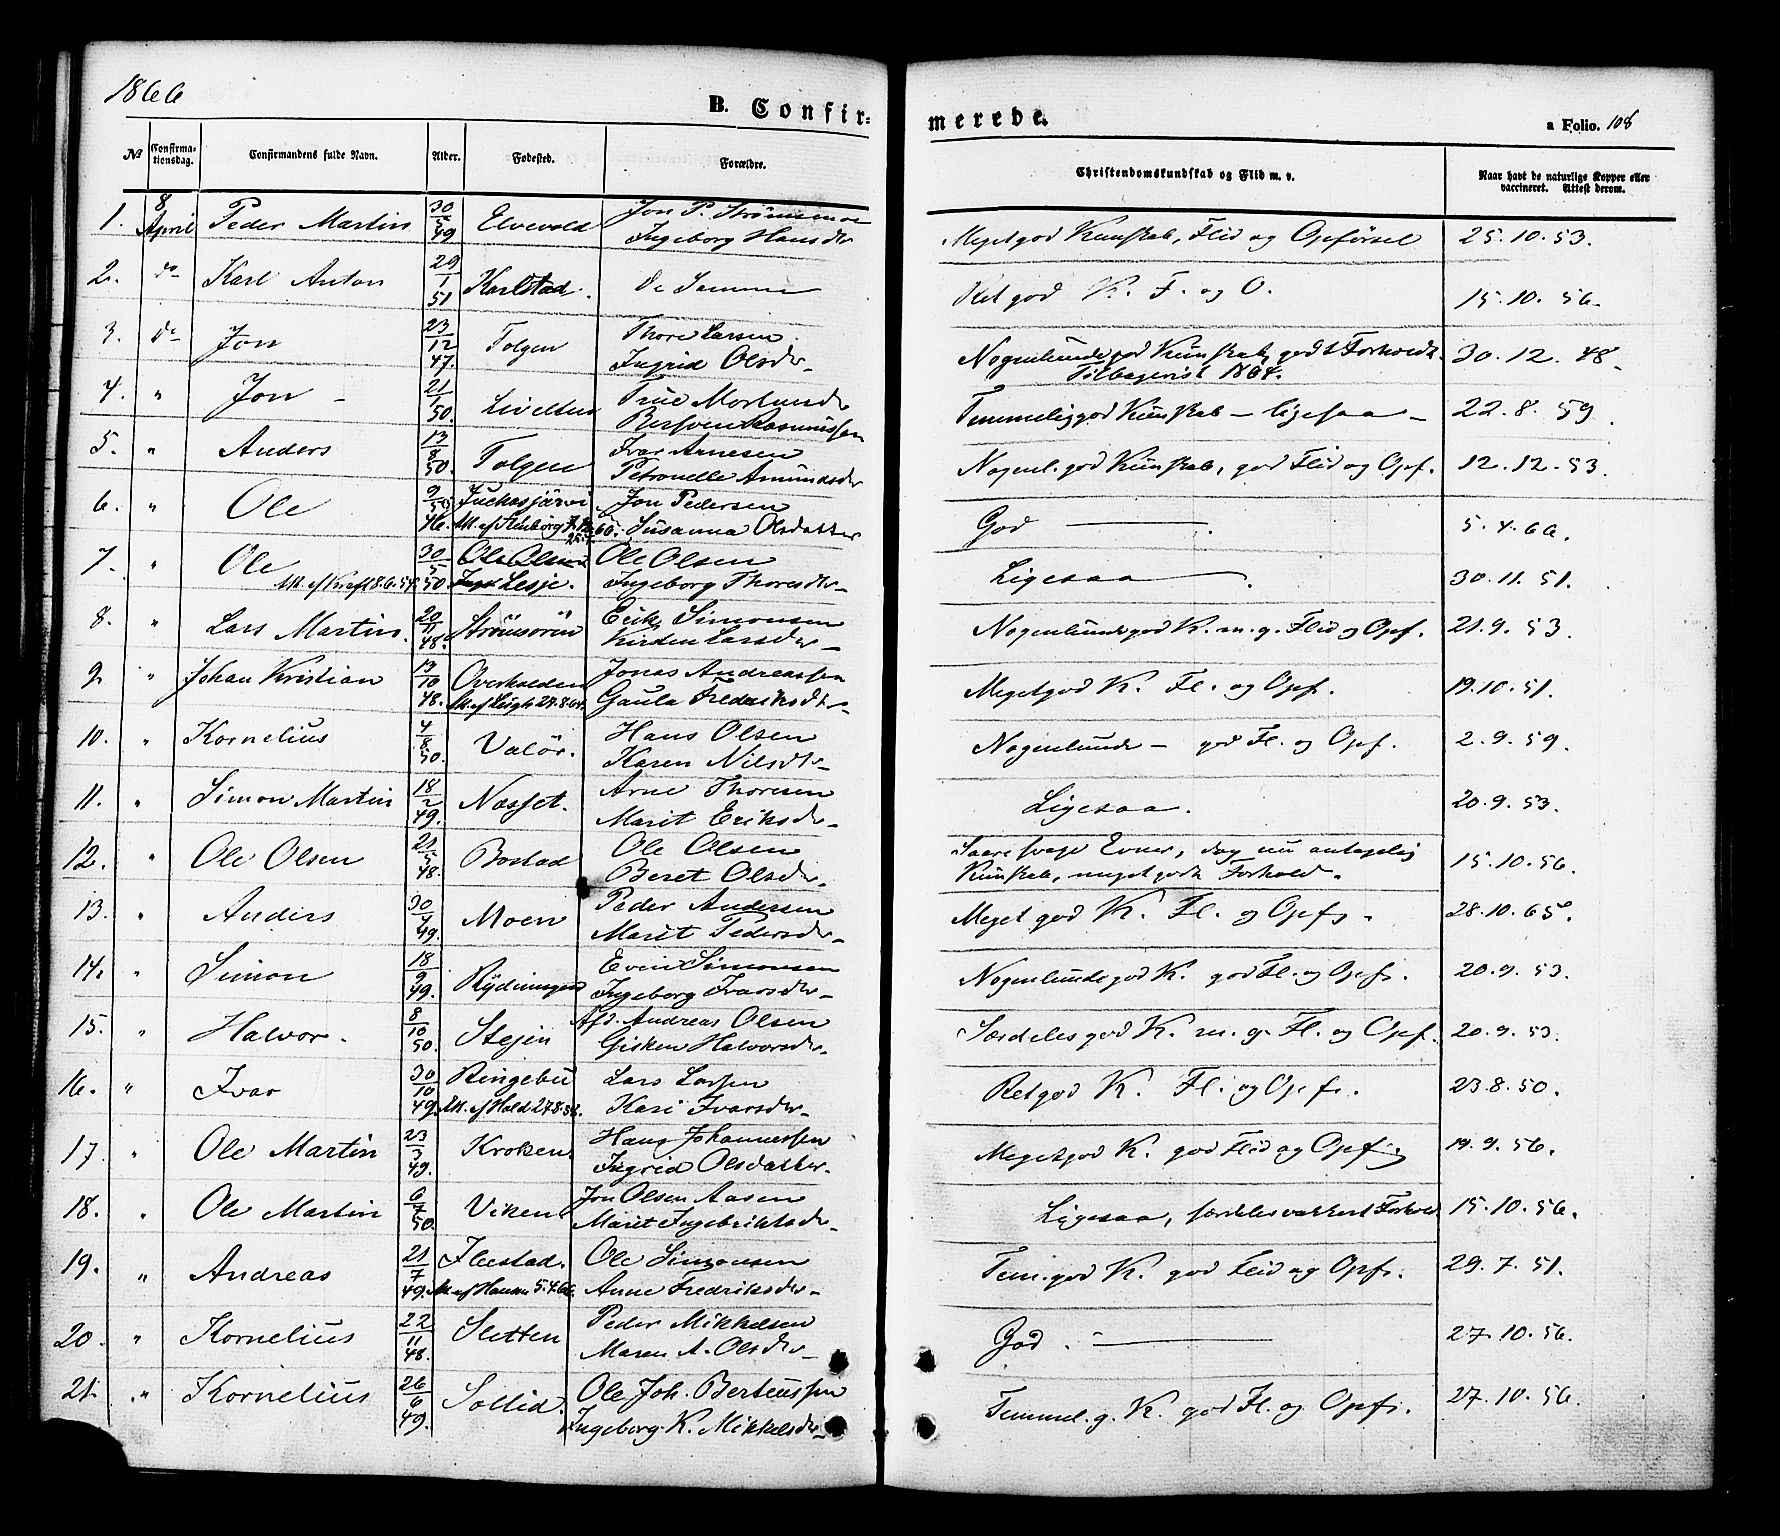 1866
B. Confirmerede.
a Folio. 108
No Confirmationsdag. Confirmandens fulde Navn. Alder. Fødested. Forældre. Christendomskundskab og Flid m. v. Naar havt de naturlige Kopper eller vaccineret. Attest derom.
1. 8 April Peder Martin 30/5 49 Elvevold Jon P. Strømsmoe Meget god Kunskab, Flid og Opførsel 25.10.53.
Ingeborg Hansdtr
2. do Karl Anton 29/1 51 Karlstad. De Samme Ret god K. F. og O. 15.10.56.
3. do Jon 23/12 47. Tolgen Thore Larsen Nogenlunde god Kunskab, godt Forhold. 30.12.48
Ingrid Olsdr Tilbagevist 1864.
4. " Jon 21/1 50. Livelten True Temmelig god Kunskab - ligesaa - 22.8.59.
Rasmussen
5. " Anders 13/8 50. Tolgen Ivar Arnesen Nogenl. god Kunskab, god Flid og Opf. 12.12.53.
Petronelle Amundsdr
6. " Ole 9/ 46. Juckasjärvi Jon Pedersen God 5.4.66.
Att. af Susanna Olsdatter
7. " Ole 30/5 50 Ole Olsen Ole Olsen Ligesaa. 30.11.51.
Att. af Kraft 8.6.54. Lesje. Ingeborg Thoresdtr
8. " Lars Martin. 20/11 48. Strømsøren Erik Simonsen Nogenlunde god K. m. g. Flid og Opf. 21.9.53.
Kirsten Larsdr
9. " Johan Kristian 13/10 48. Overhalden Jonas Andreassen Meget god K. Fl. og Opf. 19.10.51.
Gaula Fredriksdtr
10. " Kornelius 4/8 50. Valør. Hans Olsen Nogenlunde - god Fl. og Opf. 2.9.59.
Karen Nilsdtr
11. " Simon Martin 18/2 49. Næsset. Arne Thoresen Ligesaa. 20.9.53.
Marit Eriksdr
12. " Ole Olsen 21/5 48. Bostad Ole Olsen Saare svage Evner, dog nu antagelig 15.10.56.
Beret Olsdr. Kunskab, meget godt Forhold.
13. " Anders 30/4 49. Moen Peder Andersen Meget god K. Fl. og Opf. 28.10.65.
Marit Pedersdr
14. " Simon 18/9 49. Rydningen Even Simonsen Nogenlunde god K. god Fl. og Opf. 20.9.53.
Ingeborg Ivarsdr
15. " Halvor. 8/10 50. Stejen Afd. Andreas Olsen Særdeles god K. m. g. Fl. og Opf. 20.9.53.
Gisken Halvorsdr.
16. " Ivar 30/10 49. Ringebu Lars Larsen Ret god K. Fl. og Opf. 23.8.50.
Att. af Hald 27.8. Kari Ivarsdr
17. " Ole Martin 23/3 49. Kroken Hans Johannessen Meget god K. god Flid og Opf. 19.9.56.
Ingrid Olsdatter.
18. " Ole Martin 6/7 50. Viken Jon Olsen Aasen Ligesaa, særdeles vakkert Forhold 15.10.56.
Marit Ingebriktsdr
19. " Andreas 21/7 49. Flestad. Ole Simonsen Tem. god K. god Flid og Opf. 29.7.51.
Att. af Hansen 5.4.66. Anne Fredriksdr
20. " Kornelius 22/11 48. Sletten Peder Mikkelsen God. 27.10.56.
Maren A. Olsdr
21. " Kornelius 26/6 49. Sollid. Ole Joh. Berteussen Temmel. g. K. god Fl. og Opf. 27.10.56.
Ingeborg K. Mikkelsdr